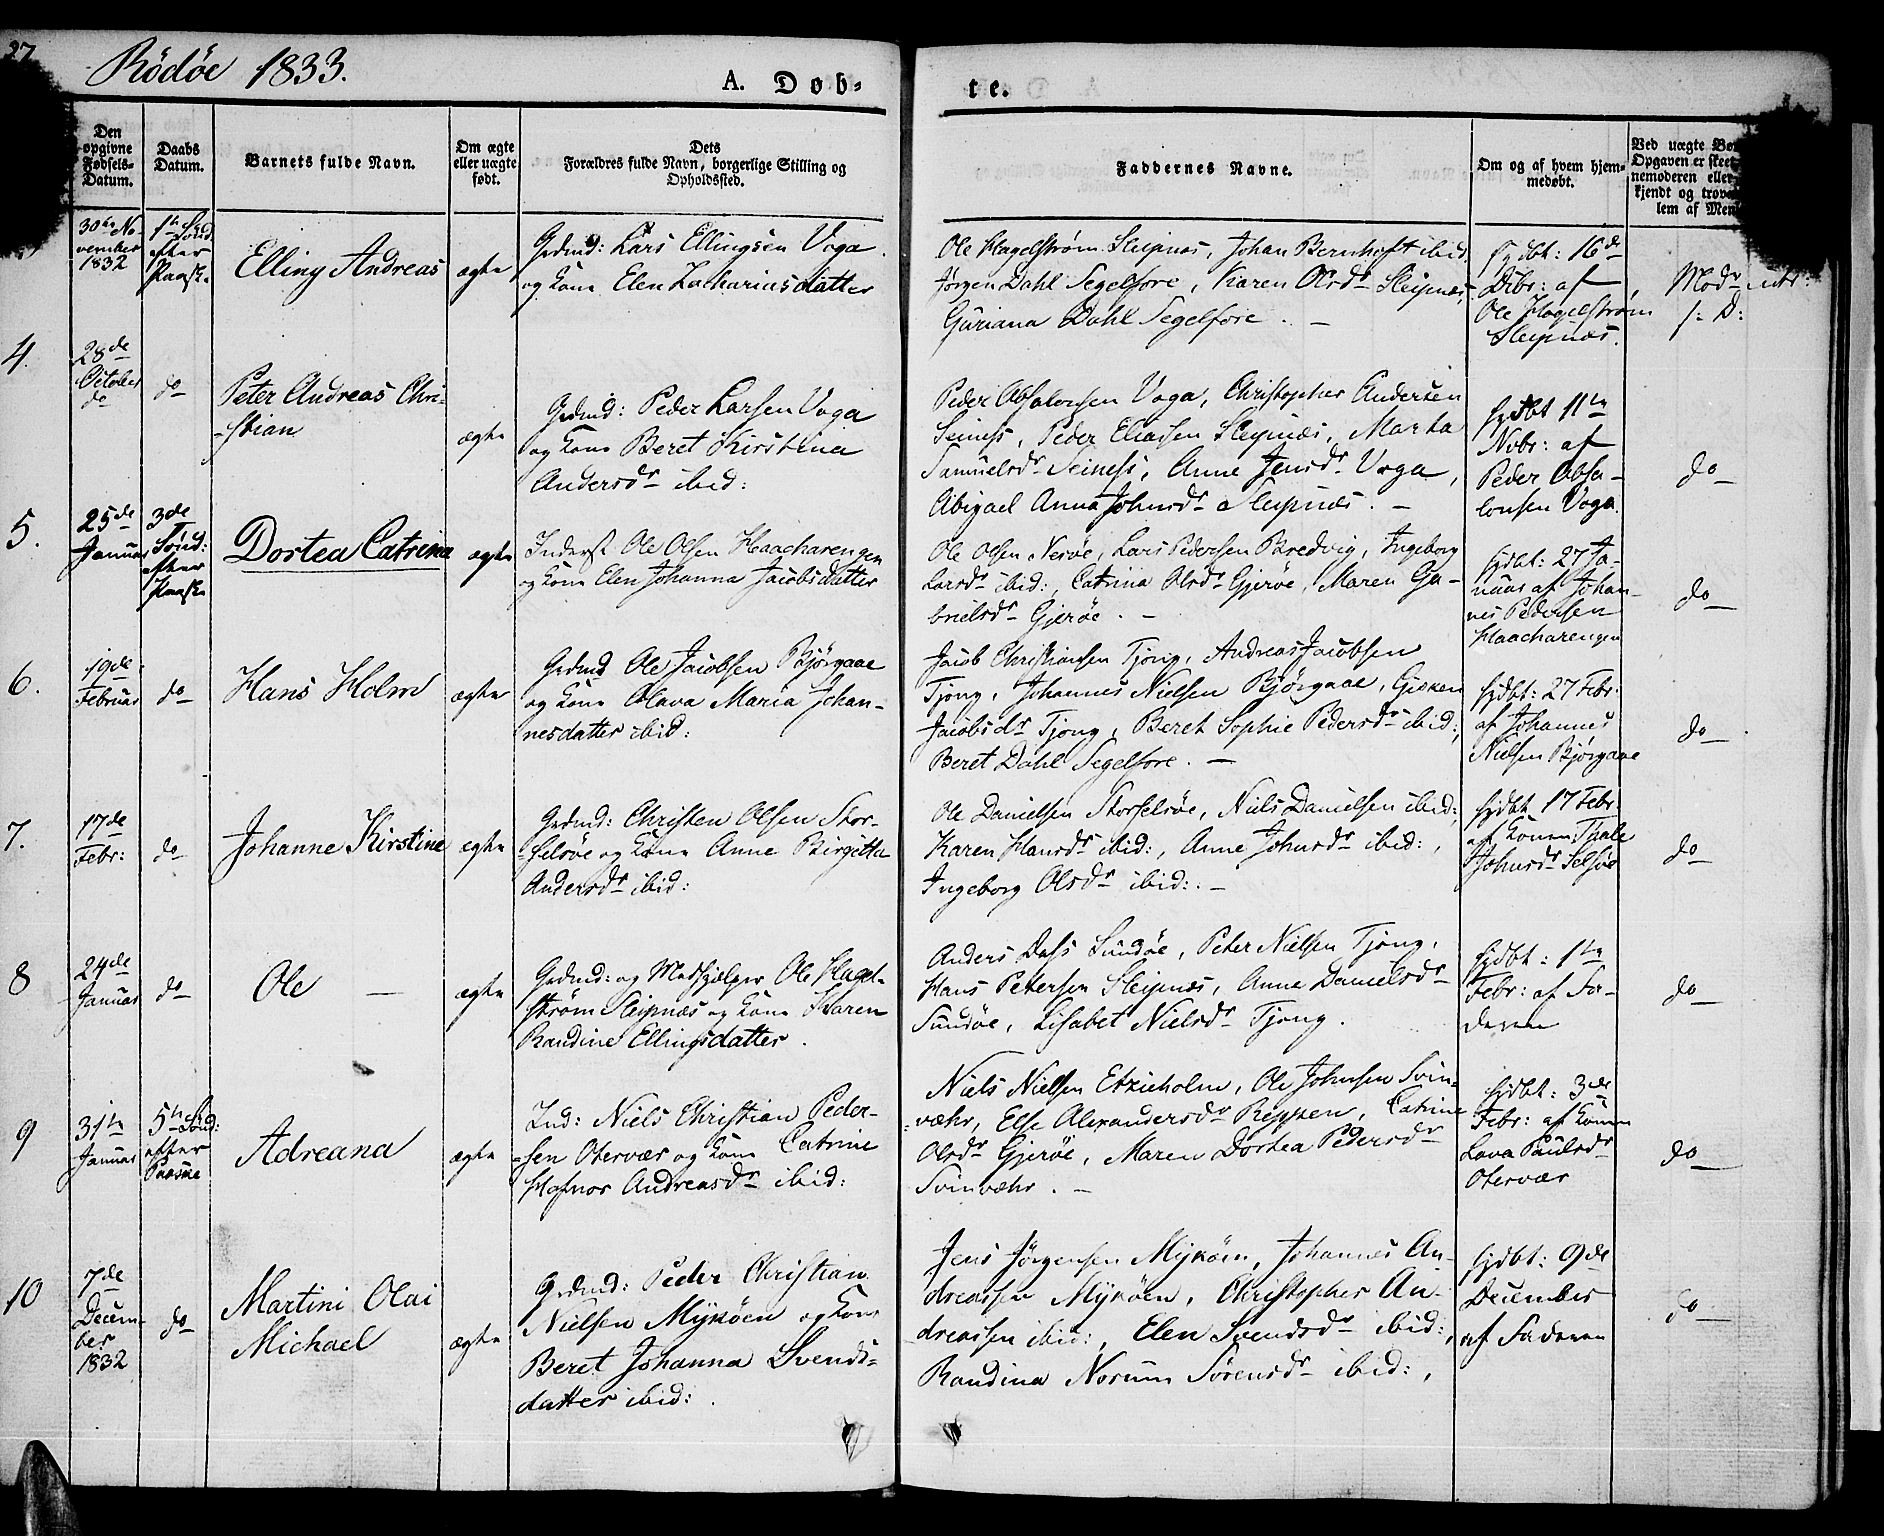 27
Rödöe 1833.
A. Døb-
te.
Den opgivne Fødsels-Datum.
Daabs Datum.
Barnets fulde Navn.
Om ægte eller uægte født.
Dets Forældres fulde Navn, borgerlige Stilling og Opholdssted.
Faddernes Navne.
Om og af hvem hjem-medøbt.
Ved uægte
Opgaven er skeet
nemoderen eller
kjendt og
lem af
30te No-
vember
1832
1te Sönd
efter
Paaske
Elling Andreas
ægte
Grdmd: Lars Ellingsen Voga
og Kone Elen Zachariasdatter
Ole Hagelstrøm Sleipnæs, Johan Bernhoft ibid
Jørgen Dahl Segelfore, Karen Olsdr Sleipnæs,
Guriana Dahl Segelfore. —
hjdbt: 16de
Dcbr: af
Ole Hagelstrøm
Sleipnæs.
4.
28de
October
do
do
Peter Andreas Chri-
-stian
ægte
Grdmd: Peder Larsen Voga
og Kone Beret Kirstina
Andersdr ibid:
Peder Absalonsen Voga, Christopher Andersen
Seiness, Peder Eliasen Sleipnæs, Marta
Samuelsdr Seiness, Anne Jensdr Voga,
Abigael Anna Johnsdr Sleipnæs. —
hjdbt 11te
Nvbr: af
Peder Absa-
lonsen Voga.
do
5.
25de
Januar
3de
Sönd:
efter
Paaske
Dortea Catrina
ægte
Inderst Ole Olsen Haacharengen
og Kone Elen Johanna Jacobsdatter
Ole Olsen Nesøe, Lars Pedersen Bredvig, Ingeborg
Larsdr ibid:, Catrina Olsdr Gjerøe, Maren Ga-
brielsdr Gjerøe. —
hjdbt: 27 Ja-
nuar af Johan-
nes Pedersen
Haacharengen
do
6.
19de
Februar
do
Hans Holm
ægte
Grdmd Ole Jacobsen Bjørgaae
og Kone Olava Maria Johan-
nesdatter ibid:
Jacob Christiansen Tjong, Andreas Jacobsen
Tjong, Johannes Nielsen Bjørgaae, Gisken
Jacobsdr Tjong, Beret Sophie Pedersdr ibid:,
Beret Dahl Segelfore. —
hjdbt: 27 Febr:
af Johannes
Nielsen Bjørgaae
do
7.
17de
Febr:
do
Johanne Kirstine
ægte
Grdmd: Christen Olsen Stor-
-selsöe og Kone Anne Birgitta
Andersdr ibid:
Ole Danielsen Storselsöe, Niels Danielsen ibid:,
Karen Hansdr ibid:, Anne Johnsdr ibid:,
Ingeborg Olsdr ibid:. —
hjdbt 17 Febr:
af Konen Thale
Johnsdr Selsöe
do
8
24de
Januar
do
Ole —
ægte
Grdmd: og Medhjelper Ole Hagel-
strøm Sleipnæs og Kone Karen
Randine Ellingsdatter.
Anders Dass Sundöe, Peter Nielsen Tjong,
Hans Petersen Sleipnæs, Anne Danielsdr
Sundöe, Lisabet Nielsdr Tjong.
hjdbt: 1te
Febr: af Fa-
deren
do
9
31te
Januar
5te Sönd:
efter
Paaske
Adreana
ægte
Ind: Niels Christian Peder-
-sen Otervær og Kone Catrine
Hofnor Andreasdr ibid:
Niels Nielsen Etxieholm, Ole Johnsen Svin-
-væhr, Else Alexandersdr Reppen, Catrine
Olsdr Gjerøe, Maren Dortea Pedersdr
Svinvæhr. —
hjdbt: 3de
Febr: af Konen
Lava Paulsdr
Otervær
do
10
7de
Decem-
ber
1832
do
Martini Olai
Michael
ægte
Grdmd: Peder Christian
Nielsen Mykøen og Kone
Beret Johanna Svends-
datter ibid:
Jens Jörgensen Mykøen, Johannes An-
dreassen Mykøen, Christopher An-
dreassen ibid:, Elen Svendsdr ibid:,
Randina Norum Sörensdr ibid:,
hjdbt: 9de
December
af Faderen
do